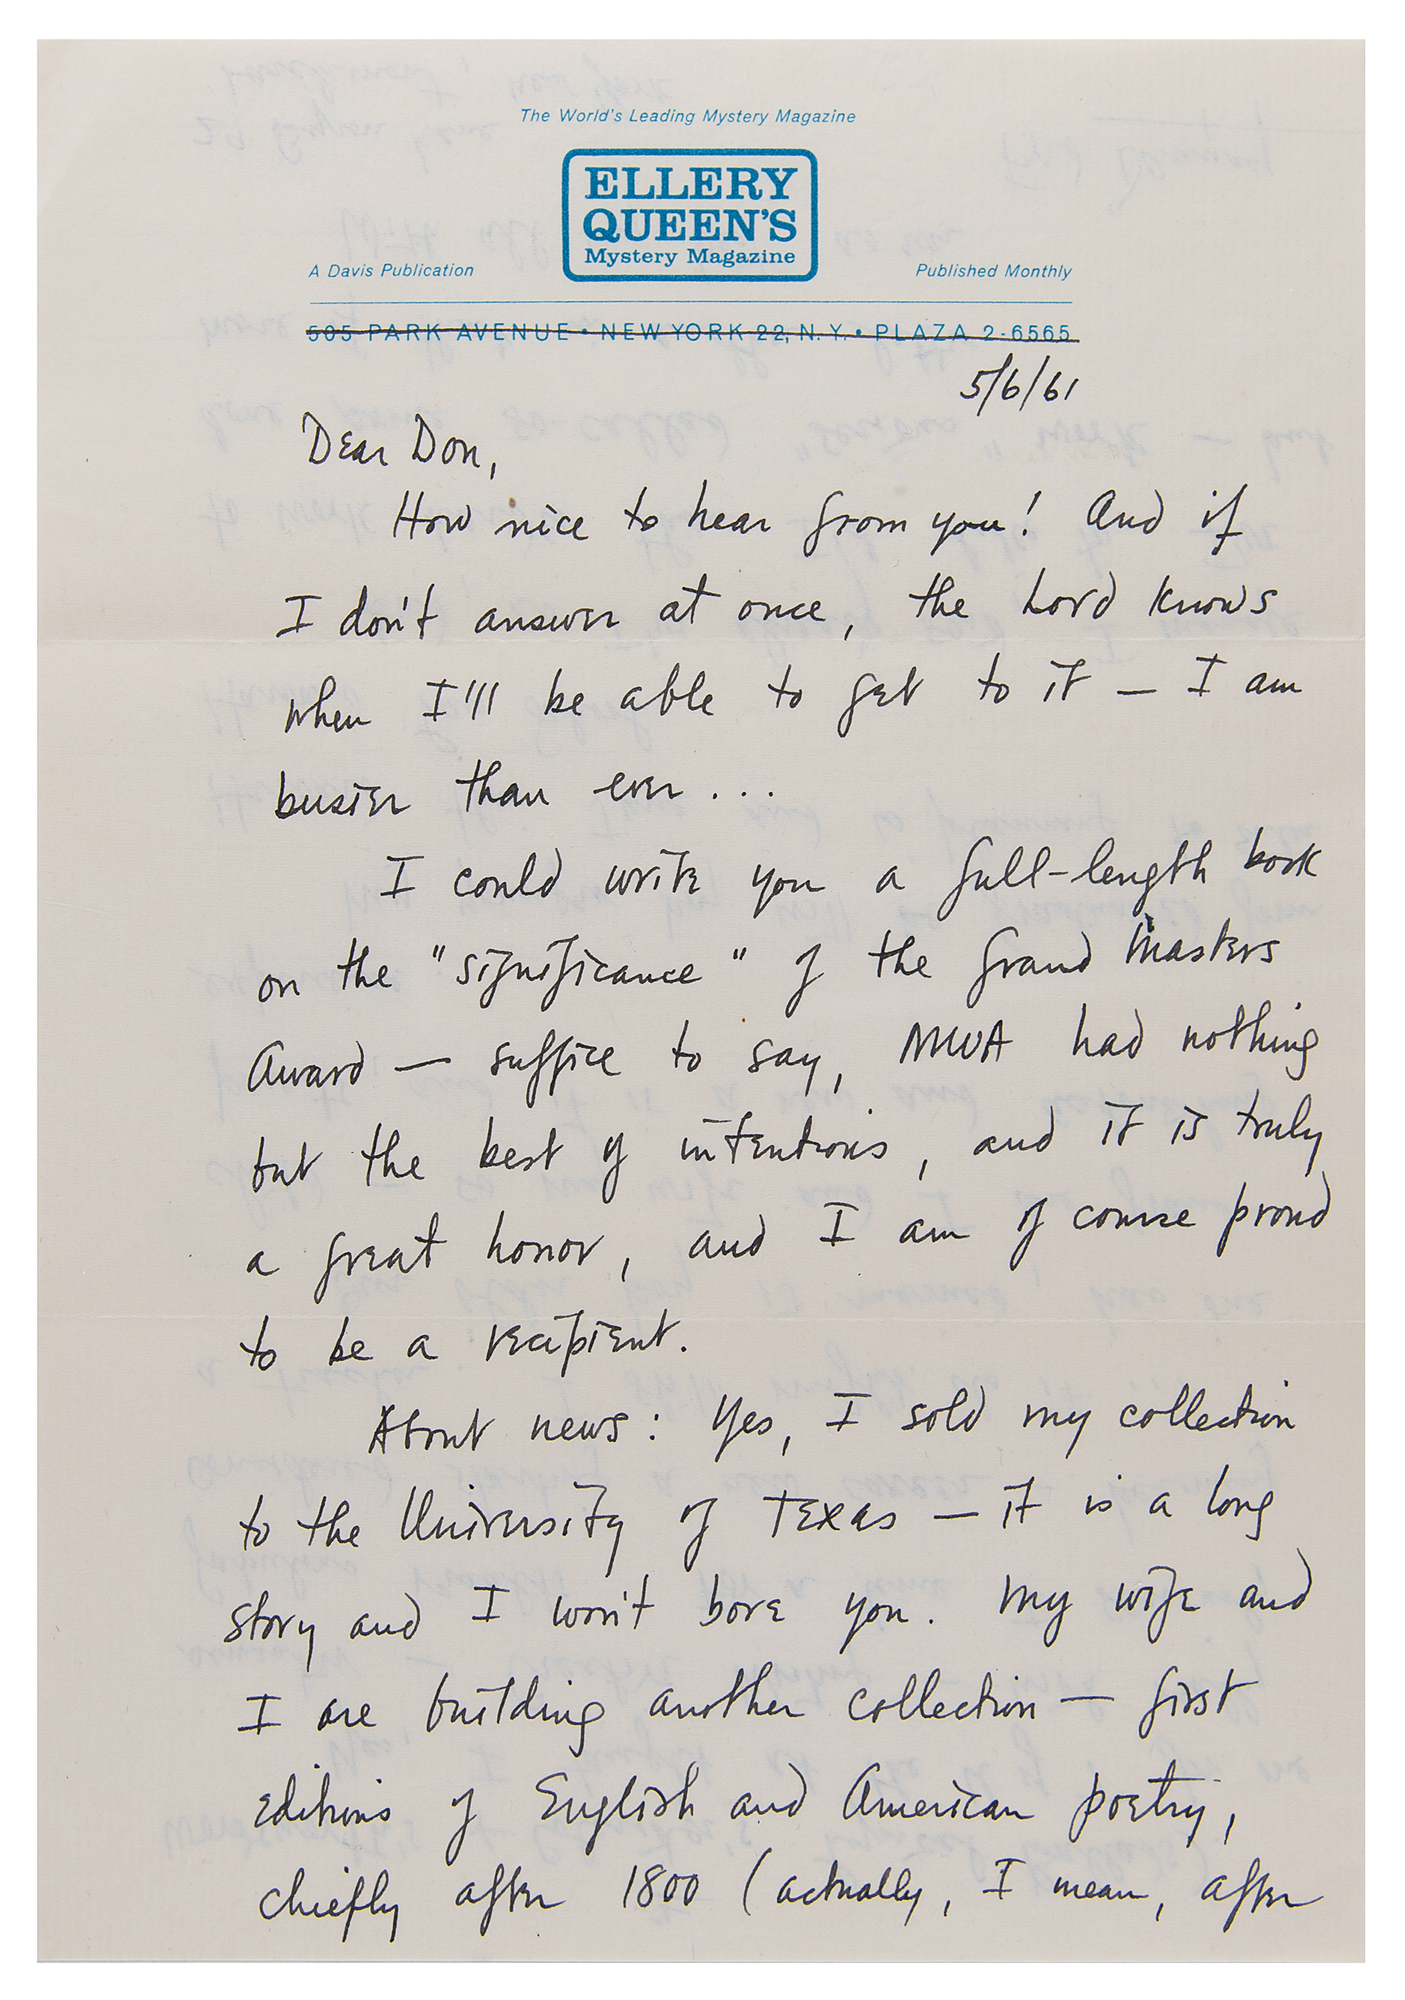 The World's Leading Mystery Magazine
ELLERY
QUEEN'S
Mystery Magazine
A Davis Publication
Published Monthly
505 PARK AVENUE • NEW YORK 22, N.Y. • PLAZA 2-6565
5/6/61
Dear Don,
How nice to hear from you! And if
I don't answer at once, the Lord knows
when I'll be able to get to it — I am
busier than ever...
I could write you a full-length book
on the "significance" of the Grand Masters
Award — suffice to say, MWA had nothing
but the best of intentions, and it is truly
a great honor, and I am of course proud
to be a recipient.
About news: Yes, I sold my collection
to the University of Texas — it is a long
story and I won't bore you. My wife and
I are building another collection — first
editions of English and American poetry,
chiefly after 1800 (actually, I mean, after